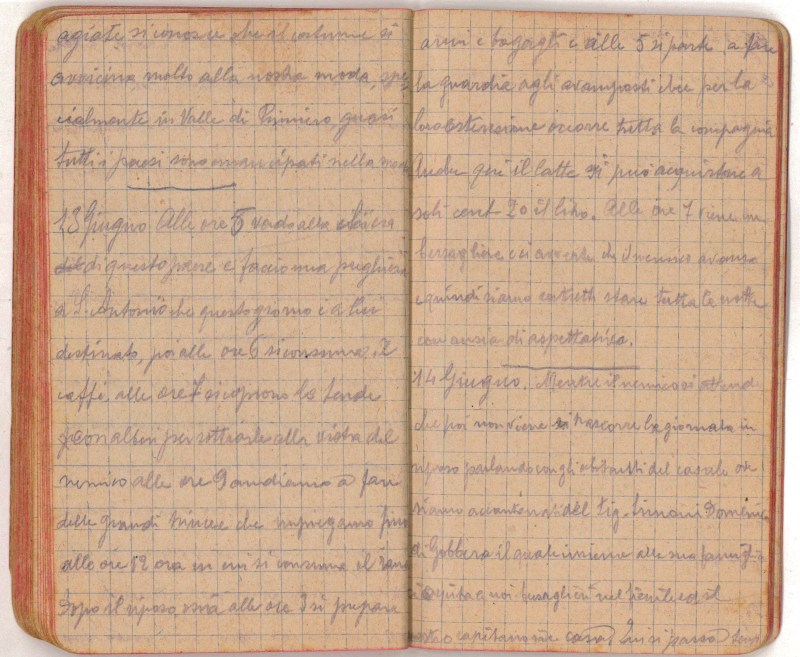 agiate si conosce che il costume si
avvicina molto alla nostra moda, spe
cialmente in Valle di Primiero, quasi
tutti i paesi sono emancipati nella
13 Giugno Alle ore 5 vado alla
di questo paese e faccio una preghiera
a S. Antonio che questo giorno è a lui
destinato, poi alle ore 6 si consuma il
caffè, alle ore 7 si coprono le tende
con alberi per sottrarle alla vista del
nemico alle ore 9 andiamo a fare
delle grandi trincee che impiegamo fino
alle ore 12 ora in cui si consuma il ran
Dopo il riposo, ossia alle ore 3 si prepara
armi e bagagli e alle 5 si parte a fare
la guardia agli avamposti che per la
loro estensione occorre tutta la compagnia
Anche qui il latte si può acquistare a
soli cent 20 il litro. Alle ore 7 viene un
bersagliere e ci avverte che il nemico avanza
e quindi siamo costretti stare tutta la notte
con ansia di aspettativa.
14 Giugno. Mentre il nemico si attend
che poi non viene si trascorre la giornata in
riposo parlando cogli abitanti del casale ove
siamo accantonati del Sig. Simoni Domenico
di Gobbera il quale insieme alla sua famiglia
ospita noi bersaglieri nel fienile ed il
capitano in casa. Qui si passa